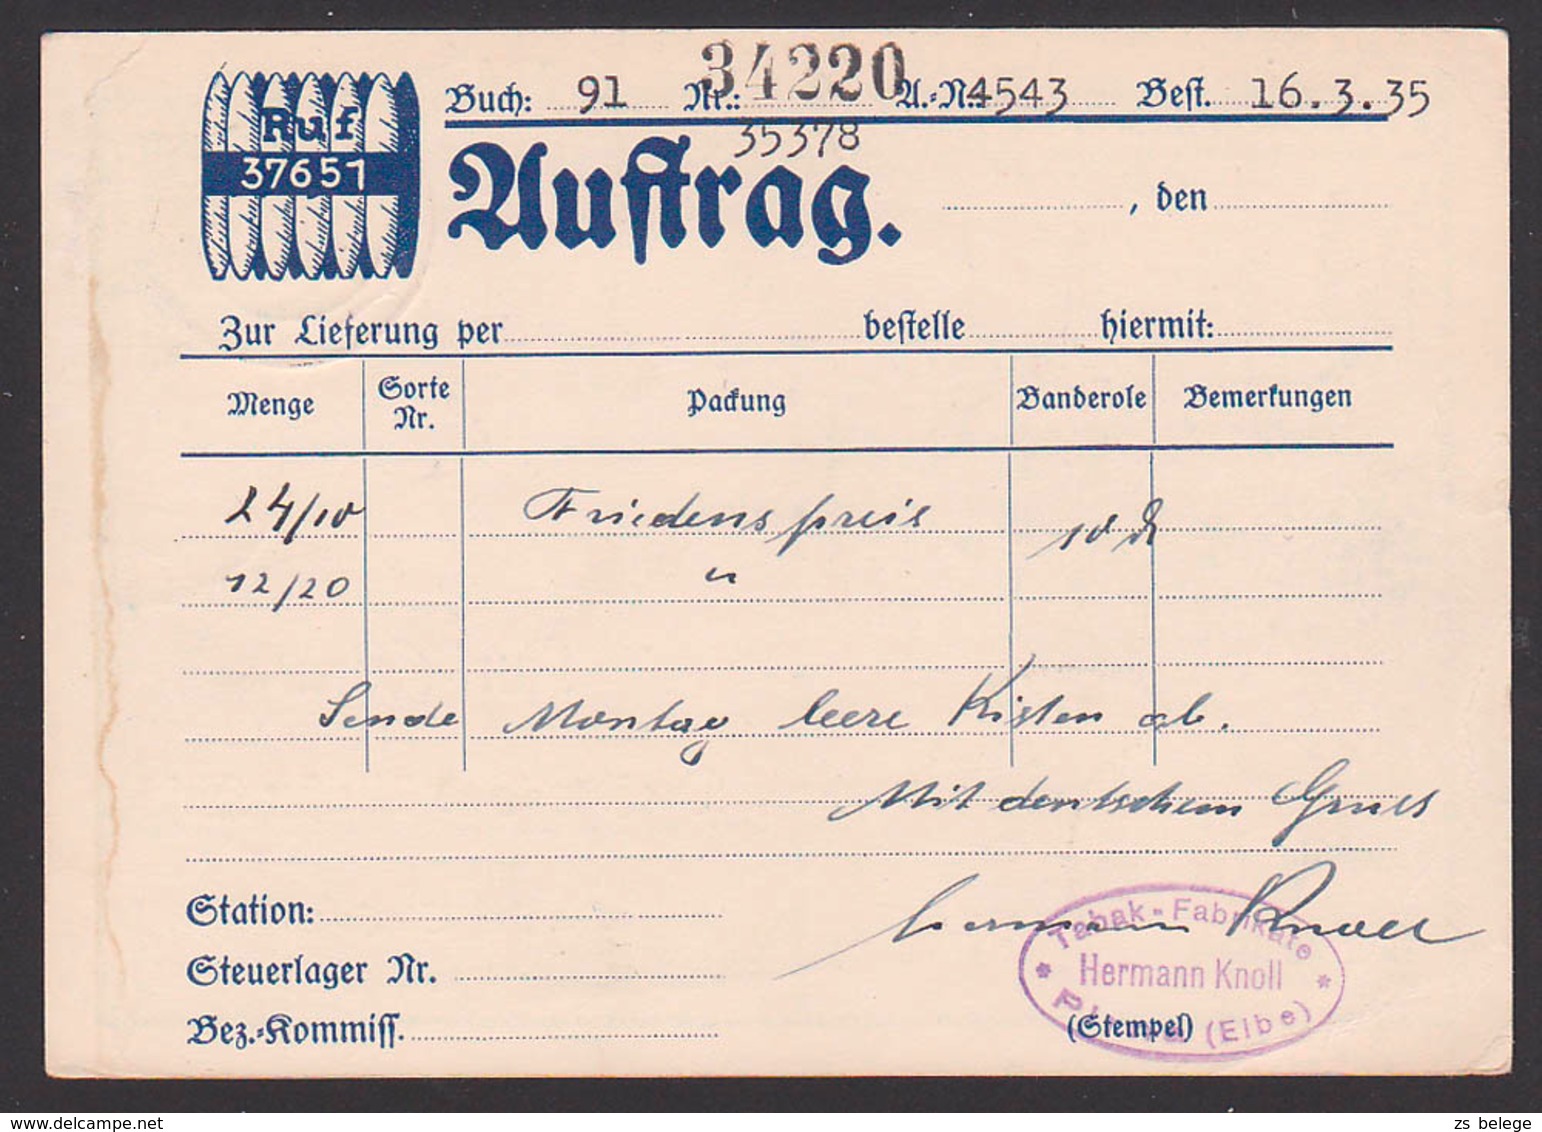 34220
Ruf
37651
Buch: 91 Nr.: A.-N. 4543 Best. 16.3.35
35378
Auftrag.
, den
Zur Lieferung per bestelle hiermit:
Menge Sorte Nr. Packung Banderole Bemerkungen
24/10 Friedenspreis 10 ₰
12/20 "
Sende Montag leere Kisten ab.
Mit deutschem Gruss
Hermann Knoll
Station:
Steuerlager Nr.
Bez.-Kommiss.
Tabak-Fabrikate
* Hermann Knoll *
Pirna (Elbe)
(Stempel)
zs belege